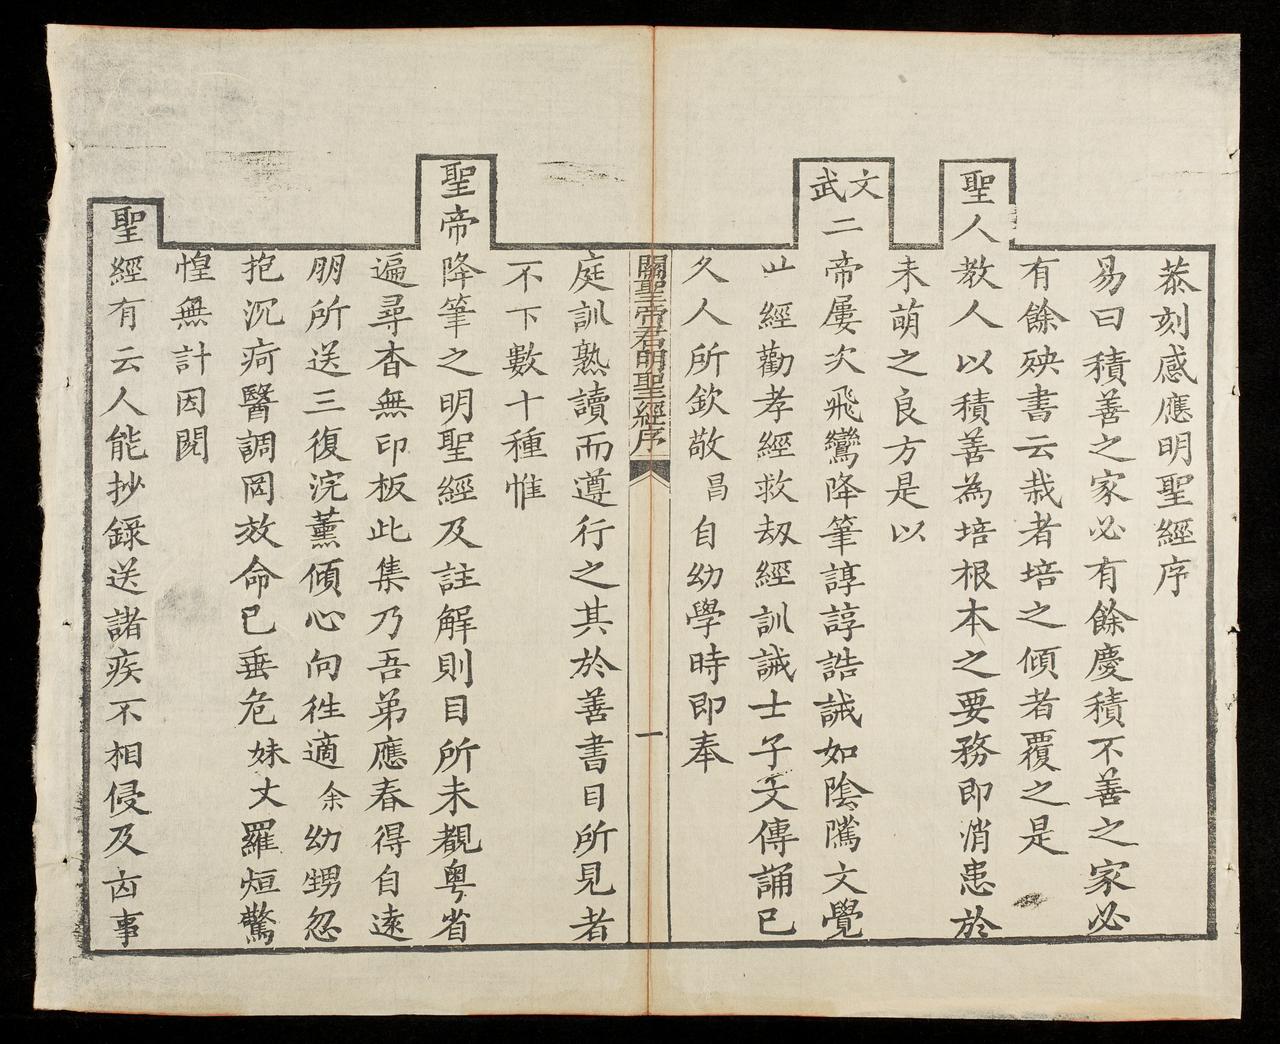 恭刻感應明聖經序
易曰積善之家必有餘慶積不善之家必
有餘殃書云栽者培之傾者覆之是
聖人教人以積善為培根本之要務即消患於
未萌之良方是以
文武二帝屢次飛鸞降筆諄諄誥誡如陰隲文覺
世經勸孝經救刼經訓誡士子文傳誦已
久人所欽敬昌自幼學時即奉
關聖帝君明聖經序
一
庭訓熟讀而遵行之其於善書目所見者
不下數十種惟
聖帝降筆之明聖經及註解則目所未覩粤省
遍尋杳無印板此集乃吾弟應春得自遠
朋所送三復浣薰傾心向徃適余幼甥忽
抱沉疴醫調罔效命已垂危妹丈羅烜驚
惶無計因閱
聖經有云人能抄録送諸疾不相侵及凶事